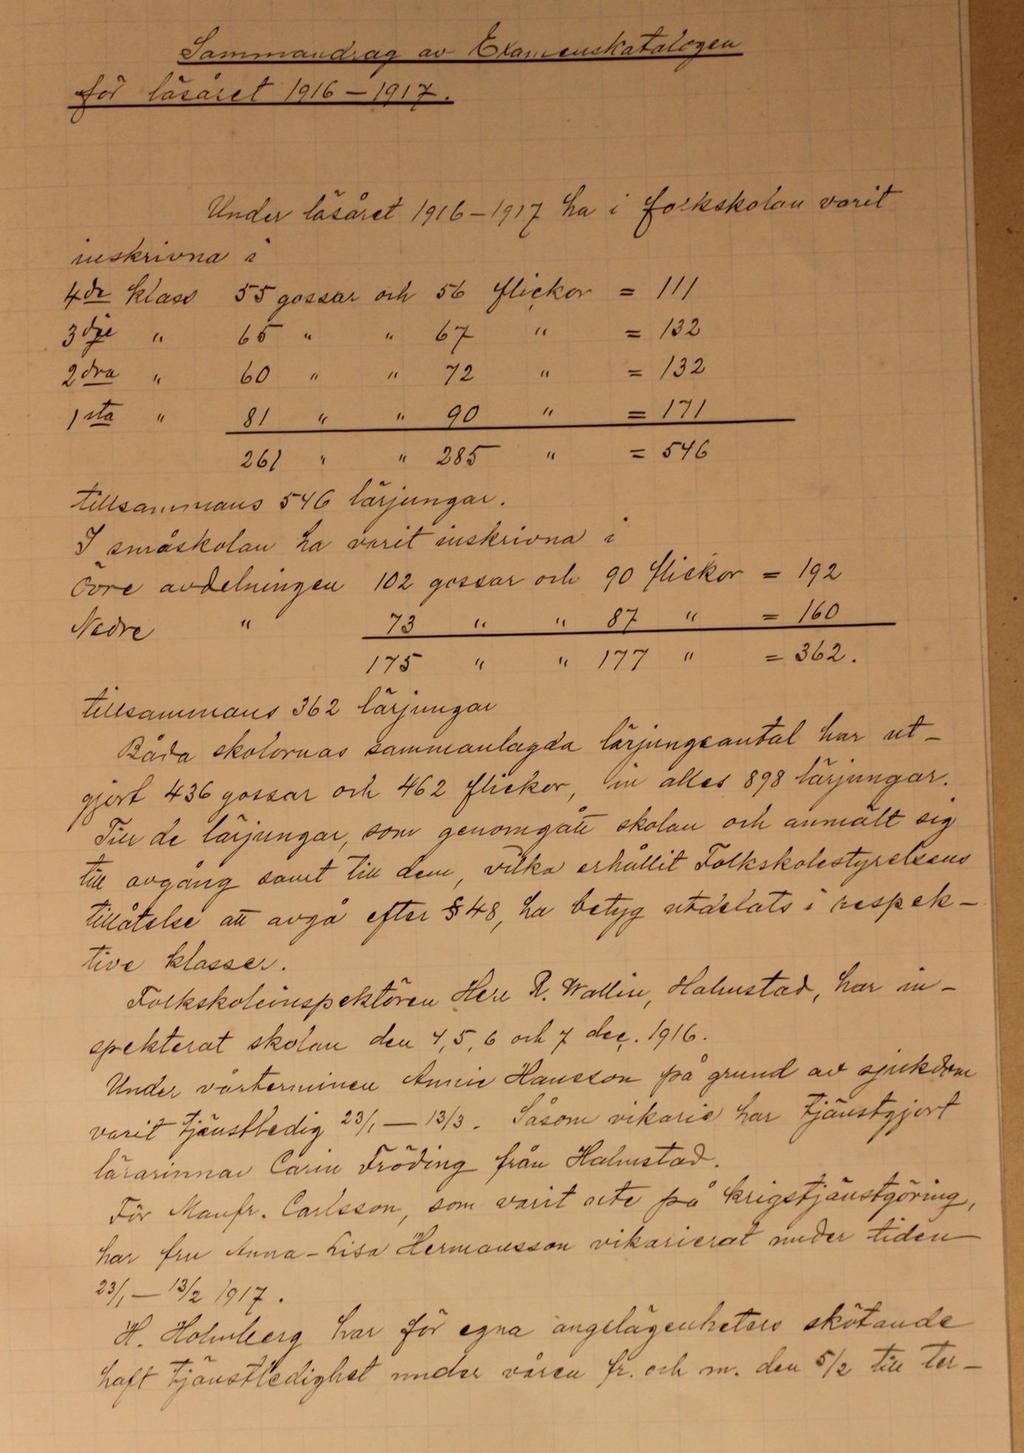 Sammandrag av Examenskatalogen
för läsåret 1916 – 1917.
Under läsåret 1916 – 1917 ha i folkskolan varit
inskrivna i
4de klass 55 gossar och 56 flickor = 111
3dje " 65 " " 67 " = 132
2dra " 60 " " 72 " = 132
1sta " 81 " " 90 " = 171
261 " " 285 " = 546
tillsammans 546 lärjungar.
I småskolan ha varit inskrivna i
Övre avdelningen 102 gossar och 90 flickor = 192
Nedre " 73 " " 87 " = 160
175 " " 177 " = 362.
tillsammans 362 lärjungar
Båda skolornas sammanlagda lärjungeantal har ut-
gjort 436 gossar och 462 flickor, in alles 898 lärjungar.
Till de lärjungar, som genomgått skolan och anmält sig
till avgång samt till dem, vilka erhållit Folkskolestyrelsens
tillåtelse att avgå efter § 48, ha betyg utdelats i respek-
tive klasser.
Folkskoleinspektören Herr R. Wallin, Halmstad, har in-
spekterat skolan den 4, 5, 6 och 7 dec. 1916.
Under vårterminen Annie Hansson på grund av sjukdom
varit tjänstledig 23/1 – 13/3. Såsom vikarie har tjänstgjort
lärarinnan Carin Fröding från Halmstad.
För Manfr. Carlsson, som varit ute på krigstjänstgöring,
har fru Anna-Lisa Hermansson vikarierat under tiden
23/1 – 13/2 1917.
H. Holmberg har för egna angelägenheters skötande
haft tjänstledighet under våren fr. och m. den 5/2 till ter-